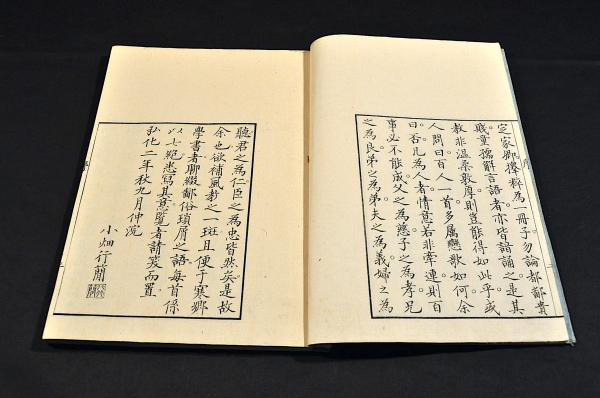 定家卿撰粹為一冊子勿論都鄙貴
賤童孺辭言語者亦皆諳誦之是其
教非溫柔敦厚則豈能得如此乎或
人問曰百人一首多屬戀歌如何余
曰否凡為人者情意若非牽連則百
事必不能成父之為慈子之為孝兄
之為良弟之為弟夫之為義婦之為
聽君之為仁臣之為忠皆然矣是故
余也欲補風教之一斑且便于寒鄉
學書者聊綴鄙俗瑣屑之語每首係
以七絕寫其意覽者請而置
弘化二年秋九月仲浣
小畑行蕑